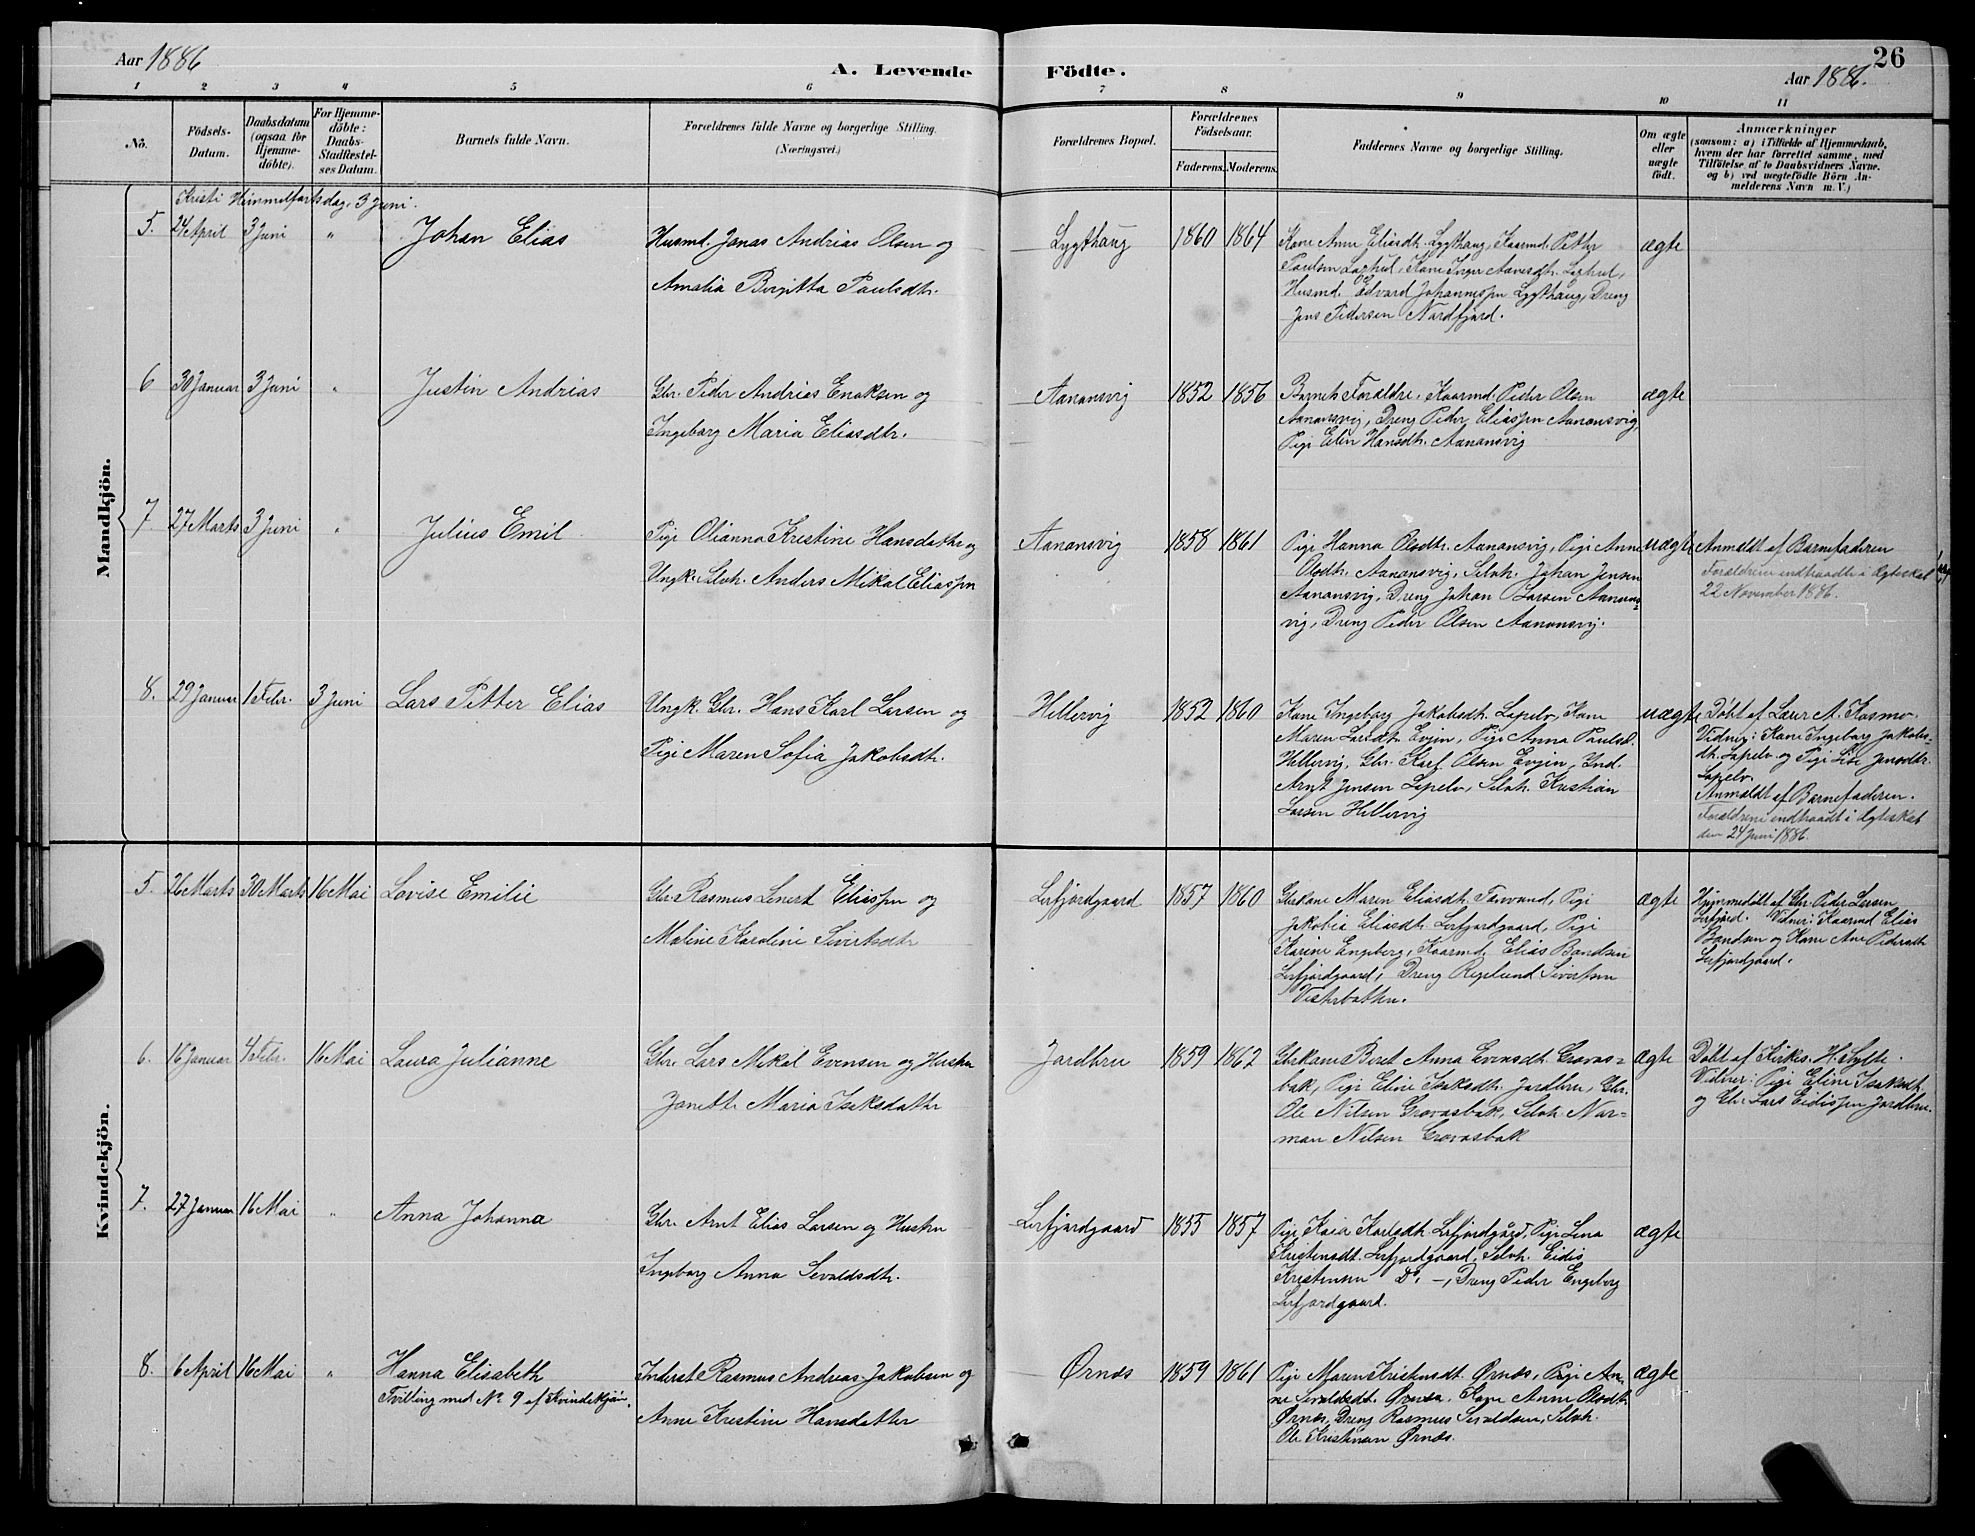 Aar 1886
A. Levende Födte.
Aar 1886.
26
1 2 3 4 5 6 7 8 9 10 11
No.
Födsels-
Datum.
Daabsdatum
(ogsaa for
Hjemme-
döbte).
For Hjemme-
döbte:
Daabs-
Stadfæstel-
ses Datum.
Barnets fulde Navn.
Forældrenes fulde Navne og borgerlige Stilling.
(Næringsvei.)
Forældrenes Bopæl.
Forældrenes
Födselsaar.
Faderens. Moderens.
Faddernes Navne og borgerlige Stilling.
Om ægte
eller
uægte
födt.
Anmærkninger
(saasom: a) i Tilfælde af Hjemmedaab,
hvem der har forrettet samme, med
Tilföielse af to Daabsvidners Navne.
og b) ved uægtefödte Börn An-
melderens Navn m. V.)
Mandkjön.
Kristi Himmelfartsdag, 3 Juni.
5. 24 April 3 Juni " Johan Elias
Husmd. Jonas Andrias Olsen og
Amalia Birgitta Paulsdtr.
Lygthaug 1860 1864
Kone Anne Eliasdtr. Lygthaug, Kaarmd. Petter
Paulsen Kone Inger
Husmd. Edvard Johannessen Lygthaug, Dreng
Jens Pedersen Nordfjord.
ægte
6 30 Januar 3 Juni " Justin Andrias
Gbr. Peder Andrias Enoksen og
Ingeborg Maria Eliasdtr.
Aanonsvig 1852 1856
Barnets Forældre, Kaarmd. Peder Olsen
Aanonsvig, Dreng Peder Eliassen Aanonsvig,
Pige Elen Hansdtr. Aanonsvig
ægte
7 27 Marts 3 Juni " Julius Emil
Pige Olianna Kristine Hansdatter og
Ungk. Selvh. Anders Mikal Eliassen
Aanonsvig 1858 1861
Pige Hanna Olsdtr. Aanonsvig, Pige Anne
Olsdtr. Aanonsvig, Selvh. Johan Jensen
Aanonsvig, Dreng Johan Larsen Aanons=
vig, Dreng Peder Olsen Aanonsvig.
uægte
Anmeldt af Barnefaderen
Forældrene indtraadte i Ægteskab
22 November 1886.
8. 29 Januar 1 Febr. 3 Juni Lars Petter Elias
Ungk. Gbr. Hans Karl Larsen og
Pige Maren Sofia Jakobsdtr.
Hellervig 1852 1860
Kone Ingeborg Jakobsdtr. Lapelv, Kone
Maren Larsdtr. Evjen, Pige Anna Paulsd.
Hellervig, Gbr. Karl Olsen Evjen, Ind.
Arnt Jensen Lapelv, Selvh. Kristian
Larsen Hellervig
uægte
Döbt af Lærer A. Kosmo.
Vidner: Kone Ingeborg Jakobs=
dtr. Lapelv og Pige Lise Jensdtr.
Lapelv.
Anmeldt af Barnefaderen.
Forældrene indtraadt i Ægteskab
den 24 Juni 1886.
Kvindekjön.
5. 26 Marts 30 Marts 16 Mai Lovise Emilie
Gbr. Rasmus Lenert Eliassen og
Maline Karoline Sivertsdtr
Leifjordgaard 1857 1860
Gbrkone Maren Eliasdtr. Pige
Jakobia Eliasdtr. Leifjordgaard, Pige
Karine Engeberg, Kaarmd. Elias Bendsen
Leifjordgaard, Dreng Sivertsen
Vesterbotten.
ægte
Hjemmedöbt af Gbr. Peder Larsen
Leifjord. Vidner: Kaarmd Elias
Bendsen og Kone Ane Pedersdtr
Leifjordgaard.
6. 16 Januar 4 Febr. 16 Mai Laura Julianne
Gbr. Lars Mikal Evensen og Hustru
Janette Maria Isaksdatter
Jordbru 1859 1862
Gbrkone Beret Anna Evensdtr. Grovas=
bak, Pige Eline Isaksdtr. Jordbru, Gbr.
Ole Nilsen Grovasbak, Selvh. Nor=
man Nilsen Grovasbak
ægte
Döbt af Kirkes. H. Hylte.
Vidner: Pige Eline Isaksdtr.
og Gbr. Lars Eidissen Jordbru.
7. 27 Januar 16 Mai " Anna Johanna
Gbr. Arnt Elias Larsen og Hustru
Ingeborg Anna Sevaldsdtr.
Leifjordgaard 1855 1857
Pige Kaia Karlsdtr. Leifjordgård, Pige Lena
Kristensdtr. Leifjordgaard, Selvh. Eidis
Kristensen Do. —, Dreng Peder Engeberg
Leifjordgaard.
ægte
8. 6 April 16 Mai " Hanna Elisabeth
Tvilling med No. 9 af Kvindekjön.
Inderst Rasmus Andreas Jakobsen og
Anne Kristine Hansdatter
Ørnes 1859 1861
Pige Maren Kristensdtr. Ørnes, Pige An=
ne Sevaldsdtr. Ørnes, Kone Anne Olsdtr.
Ørnes, Dreng Rasmus Sevaldsen, Selvh.
Ole Kristensen Ørnes.
ægte